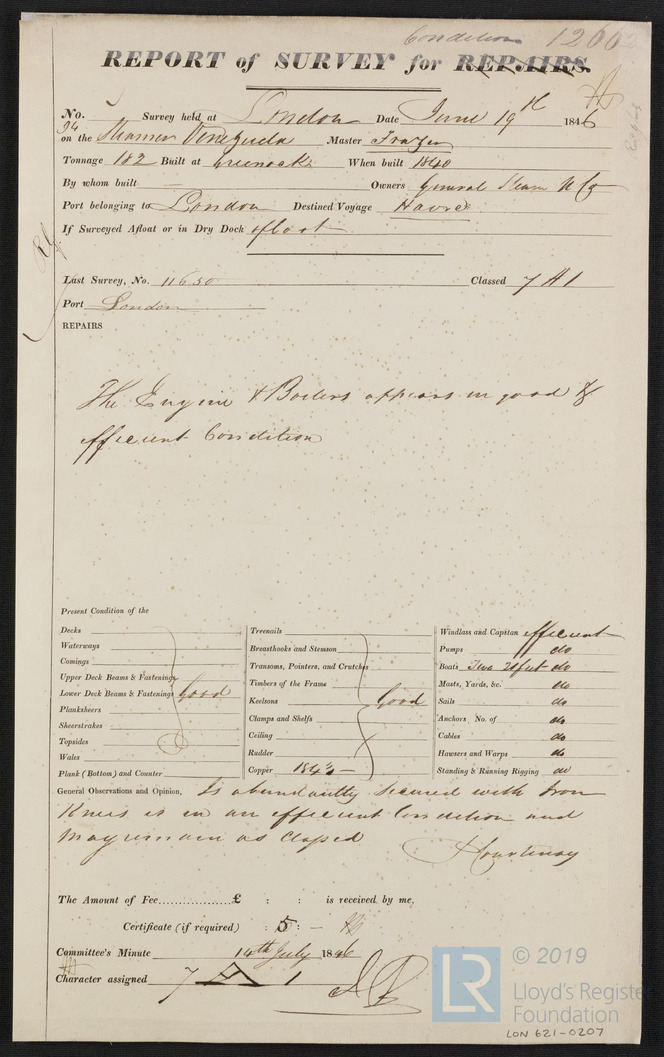 Condition 1260
REPORT of SURVEY for REPAIRS.
No. 94 Survey held at London Date June 19th 1846
on the Steamer Venezuela Master Frazer
Tonnage 182 Built at Greenock When built 1840
By whom built — Owners General Steam N Co
Port belonging to London Destined Voyage Havre
If Surveyed Afloat or in Dry Dock afloat
Last Survey, No. 11650 Classed 7 A 1
Port London
REPAIRS
The Engine & Boilers appears in good &
efficient Condition
Present Condition of the
Decks
Waterways
Comings
Upper Deck Beams & Fastenings
Lower Deck Beams & Fastenings Good
Planksheers
Sheerstrakes
Topsides
Wales
Plank (Bottom) and Counter
Treenails
Breasthooks and Stemson
Transoms, Pointers, and Crutches
Timbers of the Frame
Keelsons Good
Clamps and Shelfs
Ceiling
Rudder
Copper
Windlass and Capstan efficient
Pumps do
Boats Two do
Masts, Yards, &c. do
Sails do
Anchors, No. of do
Cables do
Hawsers and Warps do
Standing & Running Rigging do
General Observations and Opinion, Is abundantly secured with Iron
Knees is in an efficient Condition and
may remain as Classed
Courtenay
The Amount of Fee.............. £ : : is received by me,
Certificate (if required) : 5 : —
Committee's Minute 14th July 1846
Character assigned 7 A 1
LR
© 2019
Lloyd's Register
Foundation
LON 621-0207